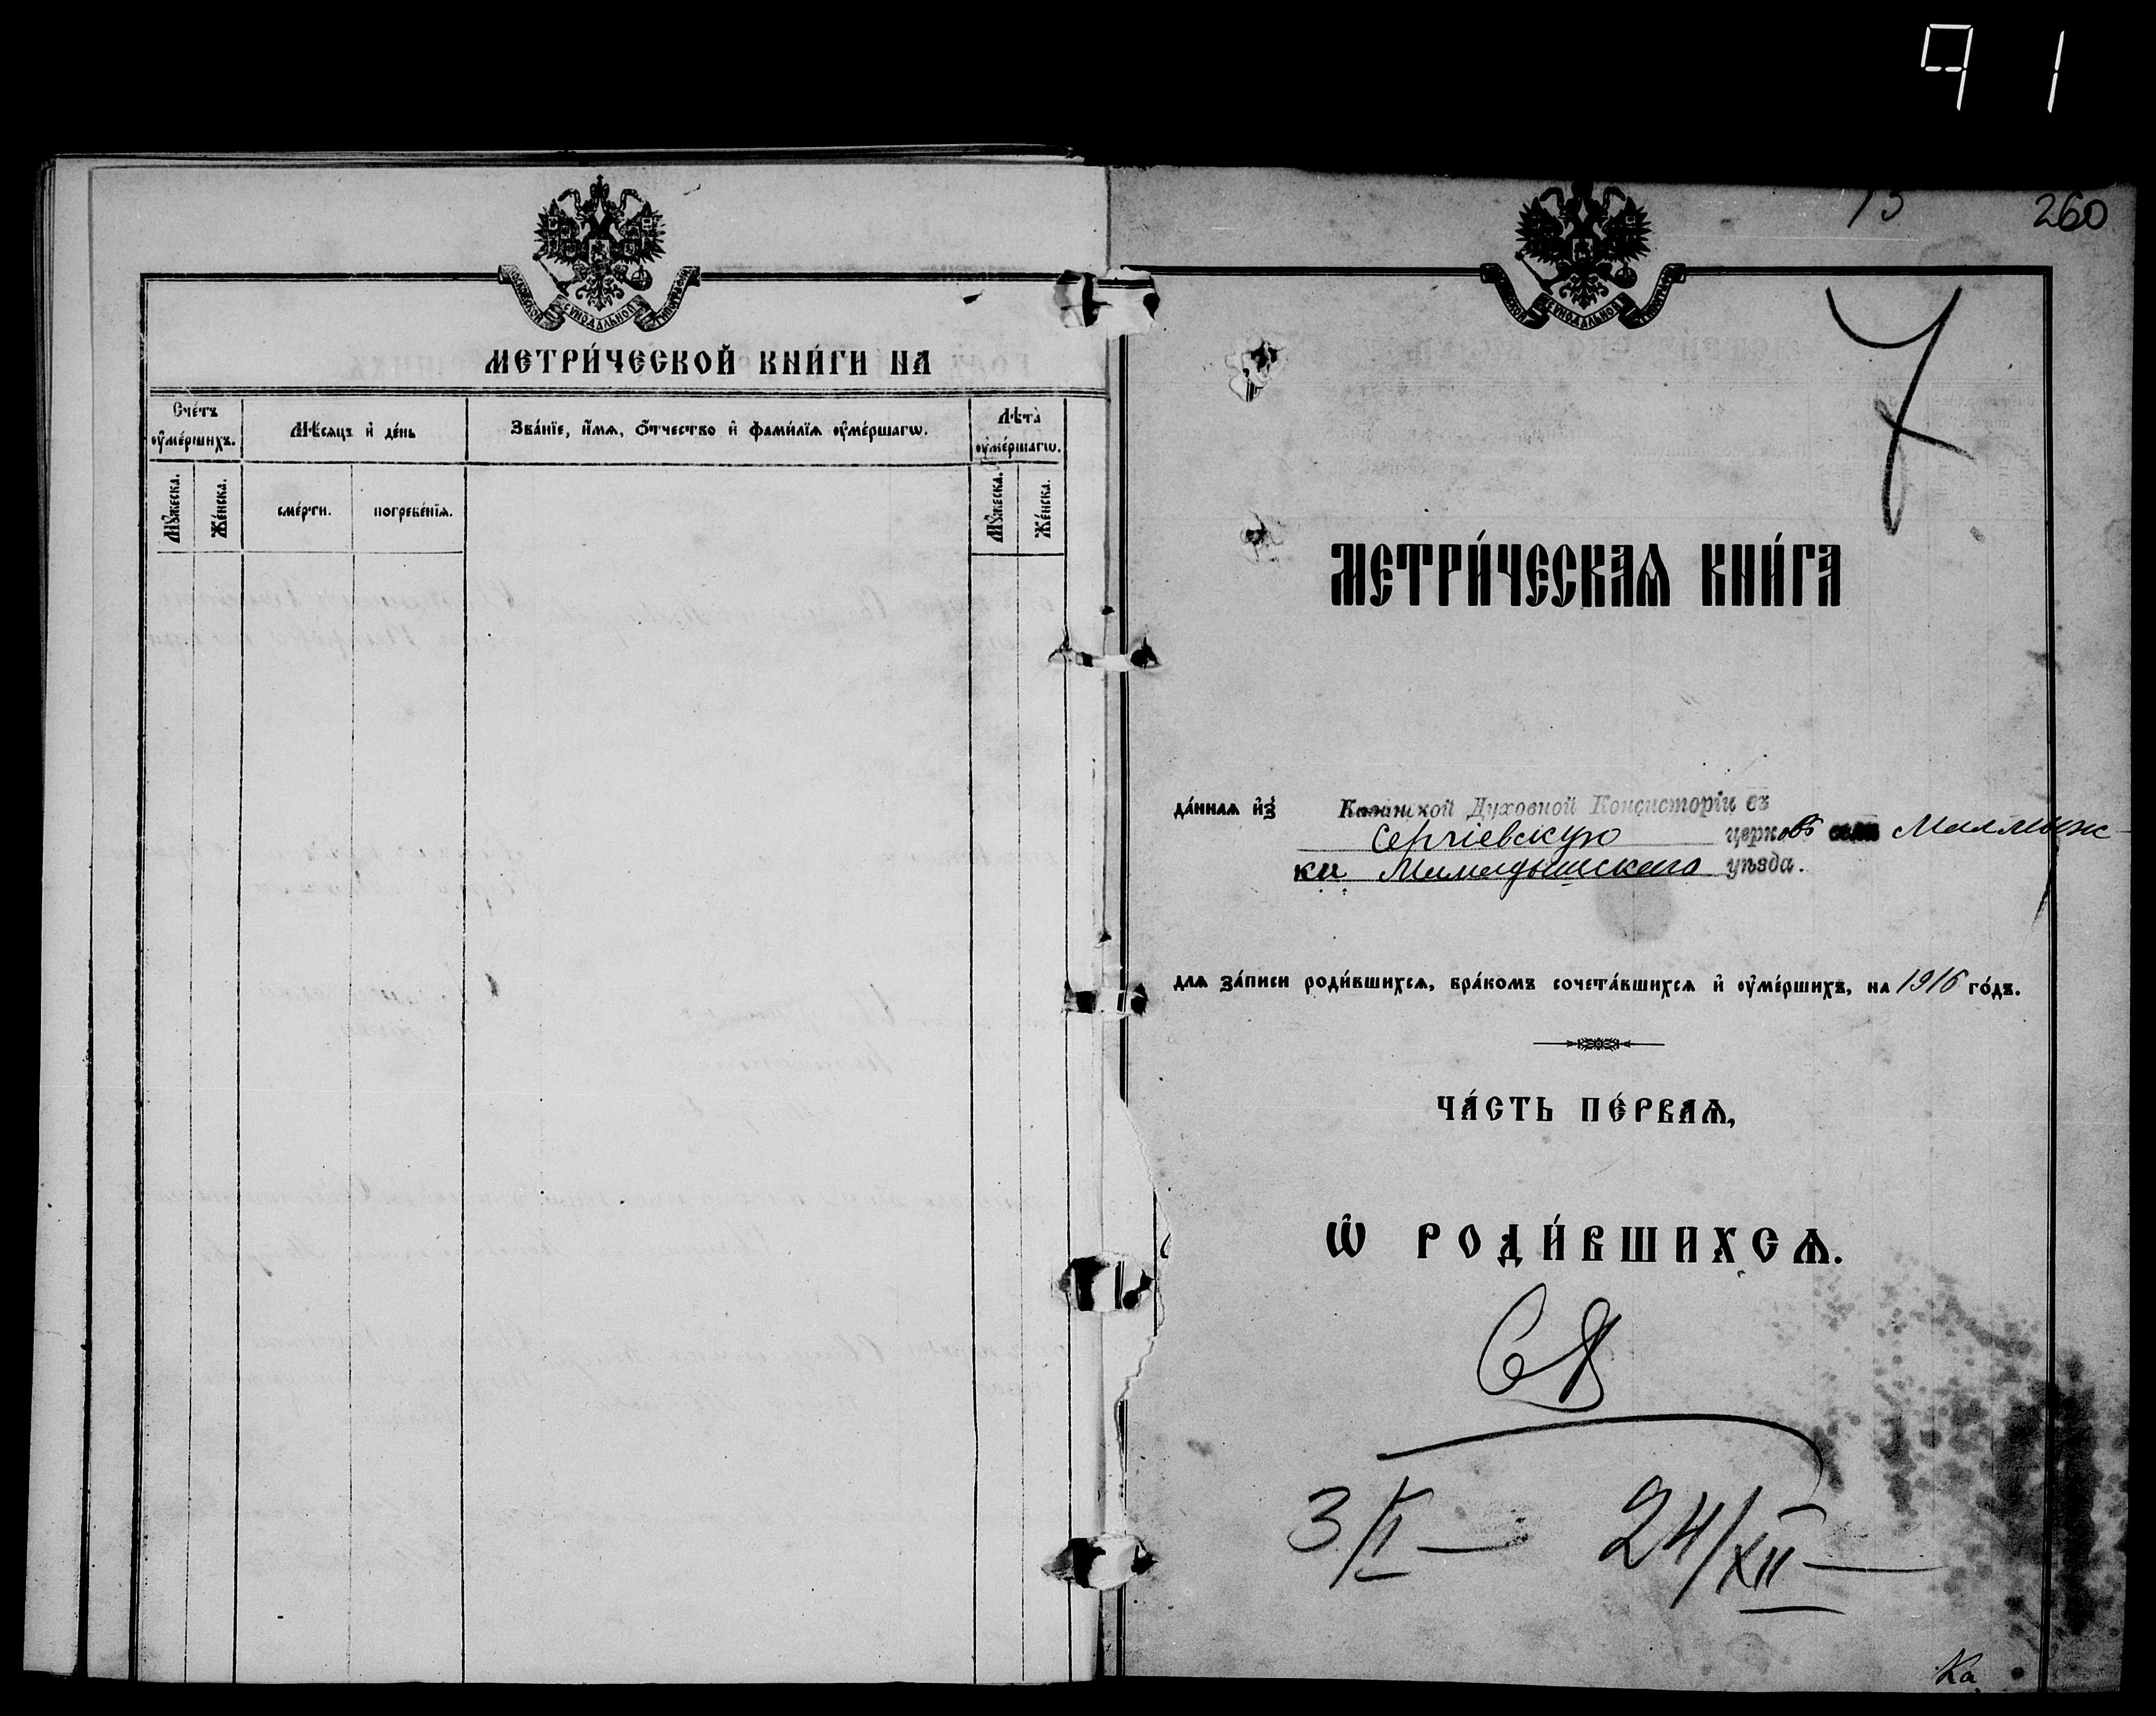 91
МЕТРИ́ЧЕСКОЙ КНИ́ГИ НА
Сче́тъ оу҆ме́ршихъ.
Мѣ́сяцъ и҆ де́нь
Зва́нїе, и҆́мѧ, ѻ҆́тчество и҆ фами́лїѧ оу҆ме́ршагѡ.
Лѣ́та̀ оу҆ме́ршагѡ.
Мꙋ́жеска.
Же́нска.
сме́рти.
погребе́нїѧ.
Мꙋ́жеска.
Же́нска.
13
260
МЕТРИ́ЧЕСКАѦ КНИ́ГА
да́ннаѧ и҆з̾
Казанской Духовной Консисторіи въ
Сергіевскую церковь
ки Мамадышскаго уѣзда.
длѧ за́писи роди́вшихсѧ, бра́комъ сочета́вшихсѧ и҆ оу҆ме́ршихъ, на 1916 го́дъ.
ЧА́СТЬ ПЕ́РВАѦ,
Ѡ҆ РОДИ́ВШИХСѦ.
3/II — 24/XII —
Ка